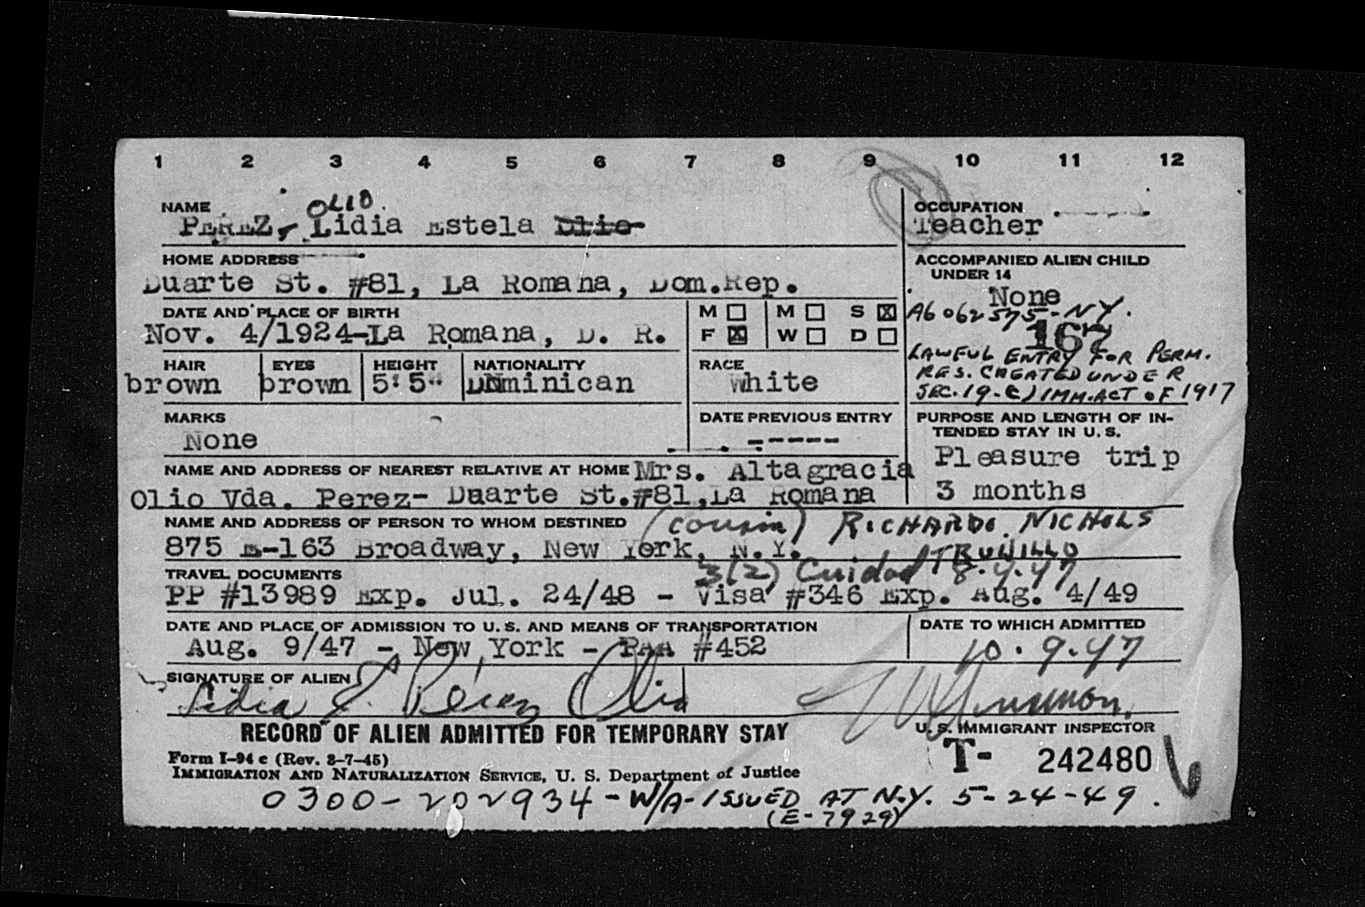 1 2 3 4 5 6 7 8 9 10 11 12
OLIO
NAME
PEREZ, Lidia Estela Olio
OCCUPATION
Teacher
HOME ADDRESS
Duarte St. #81, La Romana, Dom.Rep.
ACCOMPANIED ALIEN CHILD
UNDER 14
None
DATE AND PLACE OF BIRTH
Nov. 4/1924-La Romana, D. R.
M ☐ M ☐ S ☒
F ☒ W ☐ D ☐
A6 062575-NY.
167
LAWFUL ENTRY FOR PERM.
RES. CREATED UNDER
SEC. 19-C) IMM. ACT OF 1917
HAIR EYES HEIGHT NATIONALITY
brown brown 5'5" Dominican
RACE
White
MARKS
None
DATE PREVIOUS ENTRY
-----
PURPOSE AND LENGTH OF IN-
TENDED STAY IN U. S.
Pleasure trip
3 months
NAME AND ADDRESS OF NEAREST RELATIVE AT HOME Mrs. Altagracia
Olio Vda. Perez- Duarte St.#81,La Romana
NAME AND ADDRESS OF PERSON TO WHOM DESTINED (cousin) RICHARDO NICHOLS
875 E-163 Broadway, New York, N.Y.
3(2) Cuidad TRUJILLO
8-4-47
TRAVEL DOCUMENTS
PP #13989 Exp. Jul. 24/48 - Visa #346 Exp. Aug. 4/49
DATE AND PLACE OF ADMISSION TO U. S. AND MEANS OF TRANSPORTATION
Aug. 9/47 - New York - PAA #452
DATE TO WHICH ADMITTED
10-9-47
SIGNATURE OF ALIEN
Lidia E. Pérez Olio
U. S. IMMIGRANT INSPECTOR
RECORD OF ALIEN ADMITTED FOR TEMPORARY STAY
Form I-94 c (Rev. 8-7-45)
IMMIGRATION AND NATURALIZATION SERVICE, U. S. Department of Justice
T- 242480
0300-202934-W/A-ISSUED AT N.Y. 5-24-49.
(E-7929)